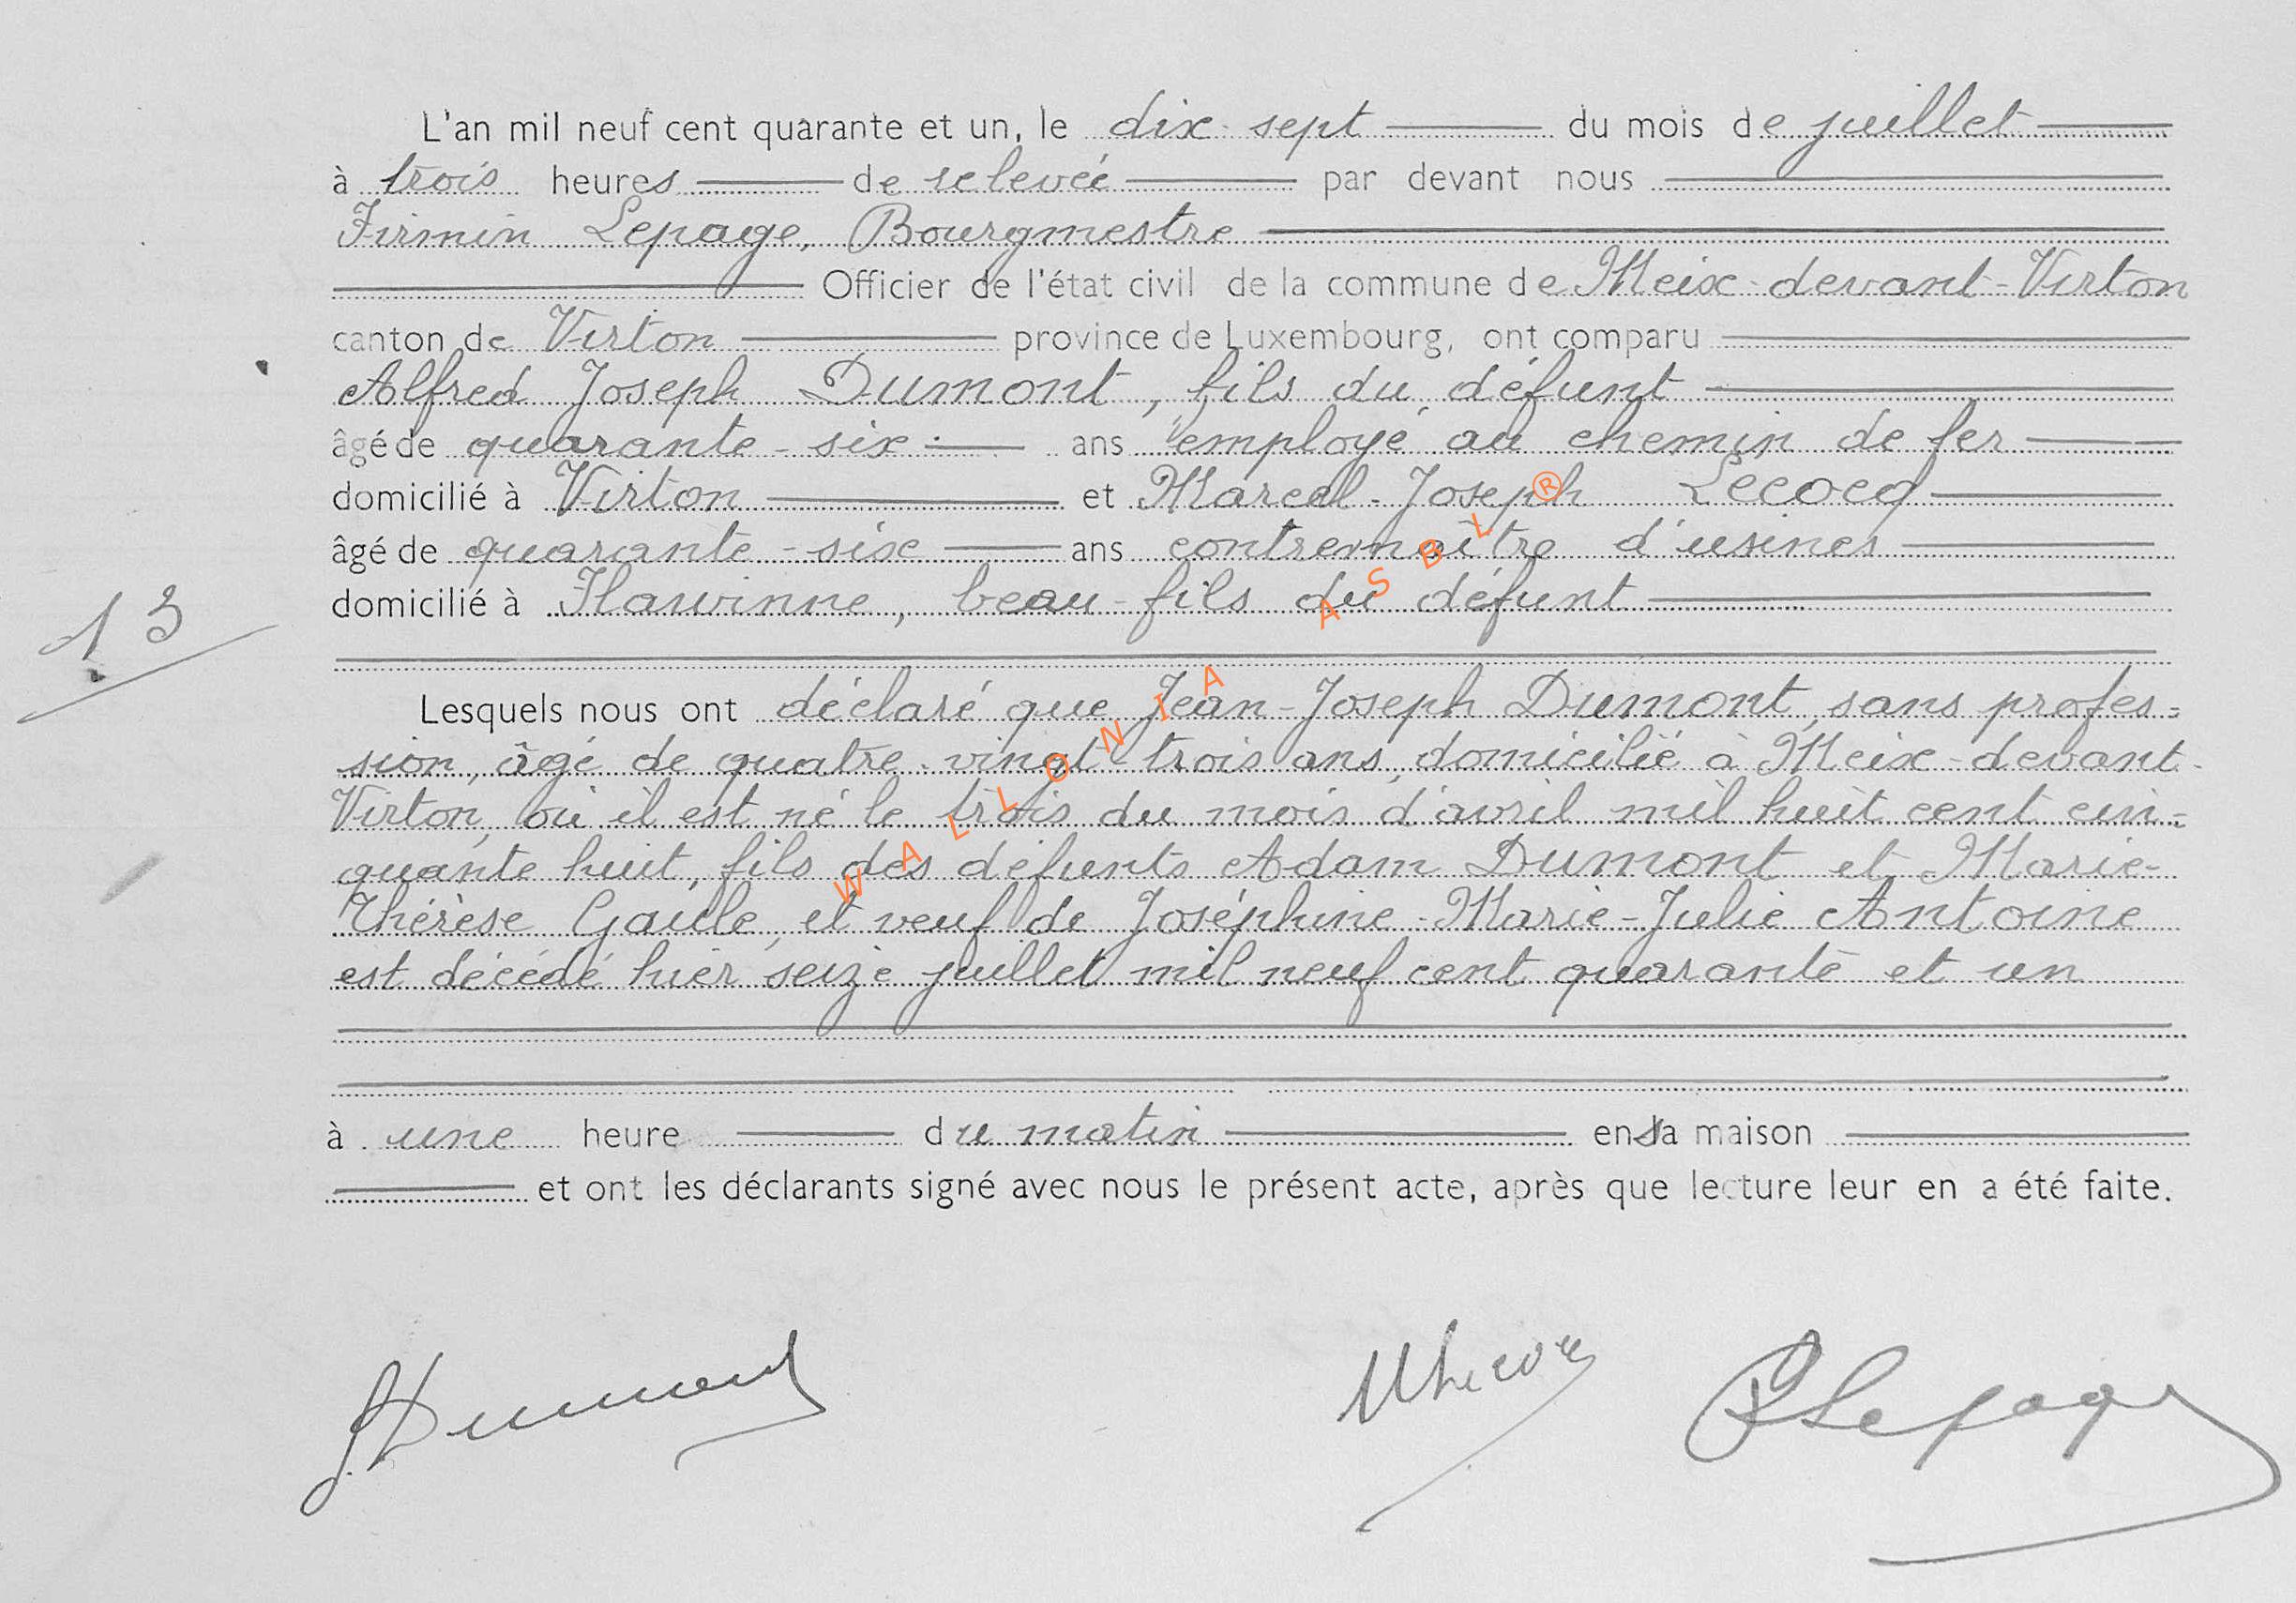 L'an mil neuf cent quarante et un, le dix-sept du mois de juillet
à trois heures de relevée par devant nous
Firmin Lepage, Bourgmestre
Officier de l'état civil de la commune de Meix-devant-Virton
canton de Virton province de Luxembourg, ont comparu
Alfred Joseph Dumont, fils du défunt
âgé de quarante-six ans employé au chemin de fer
domicilié à Virton et Marcel-Joseph Lecocq
âgé de quarante-six ans contremaître d'usines
domicilié à Flawinne, beau-fils du défunt
13
Lesquels nous ont déclaré que Jean-Joseph Dumont, sans profes=
sion, âgé de quatre-vingt-trois ans, domicilié à Meix-devant-
Virton, où il est né le trois du mois d'avril mil huit cent cin=
quante huit, fils des défunts Adam Dumont et Marie-
Thérèse Gaulle, et veuf de Joséphine-Marie-Julie Antoine
est décédé hier seize juillet mil neuf cent quarante et un
à une heure du matin en sa maison
et ont les déclarants signé avec nous le présent acte, après que lecture leur en a été faite.
Dumont
Lepage
WALLONIA ASBL ®